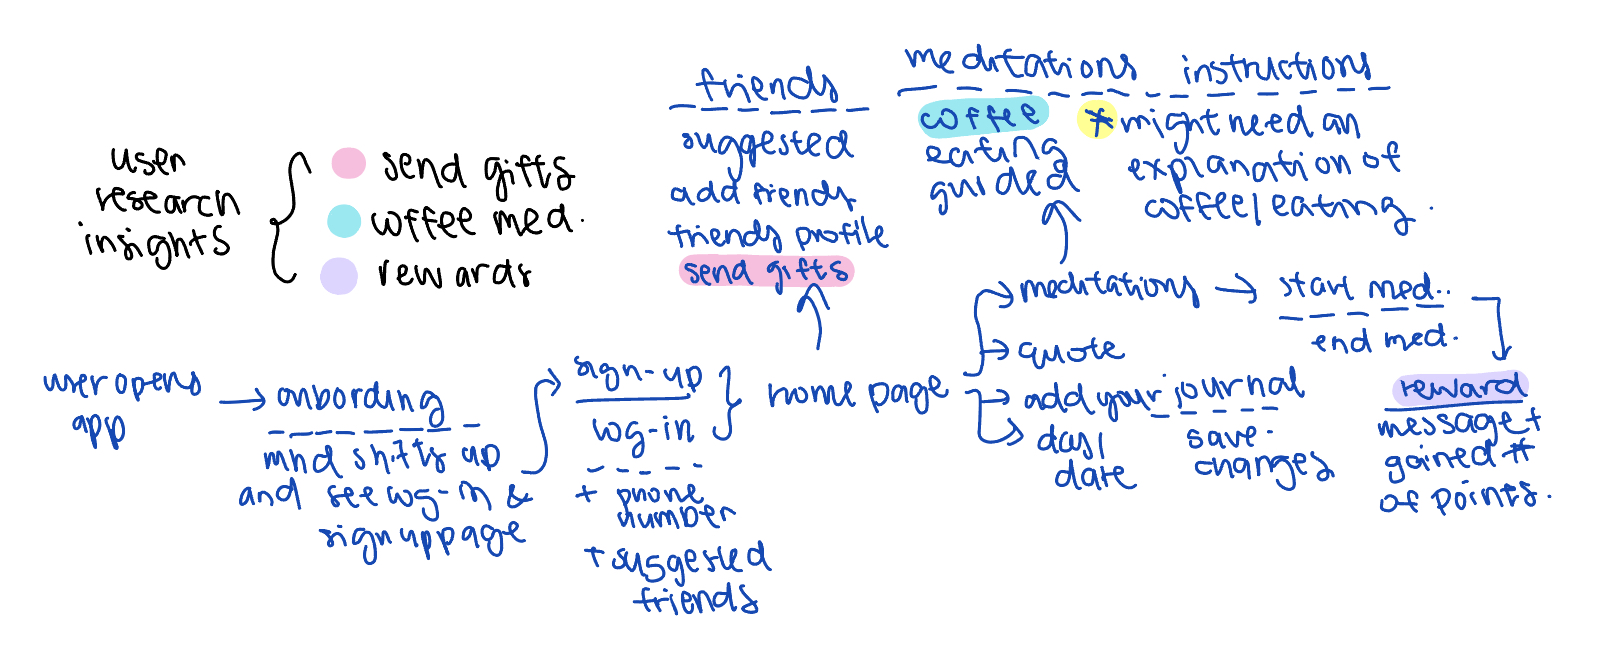 user
research
insights
send gifts
coffee med.
rewards
friends
suggested
add friends
friends profile
send gifts
meditations
coffee
eating
guided
instructions
* might need an
explanation of
coffee/eating.
user opens
app
onbording
mnd shifts up
and see log-in &
sign up page
sign-up
log-in
+ phone
number
+ suggested
friends
home page
meditations
start med..
end med.
quote
add your journal
save
changes
day/
date
reward
message +
gained #
of points.